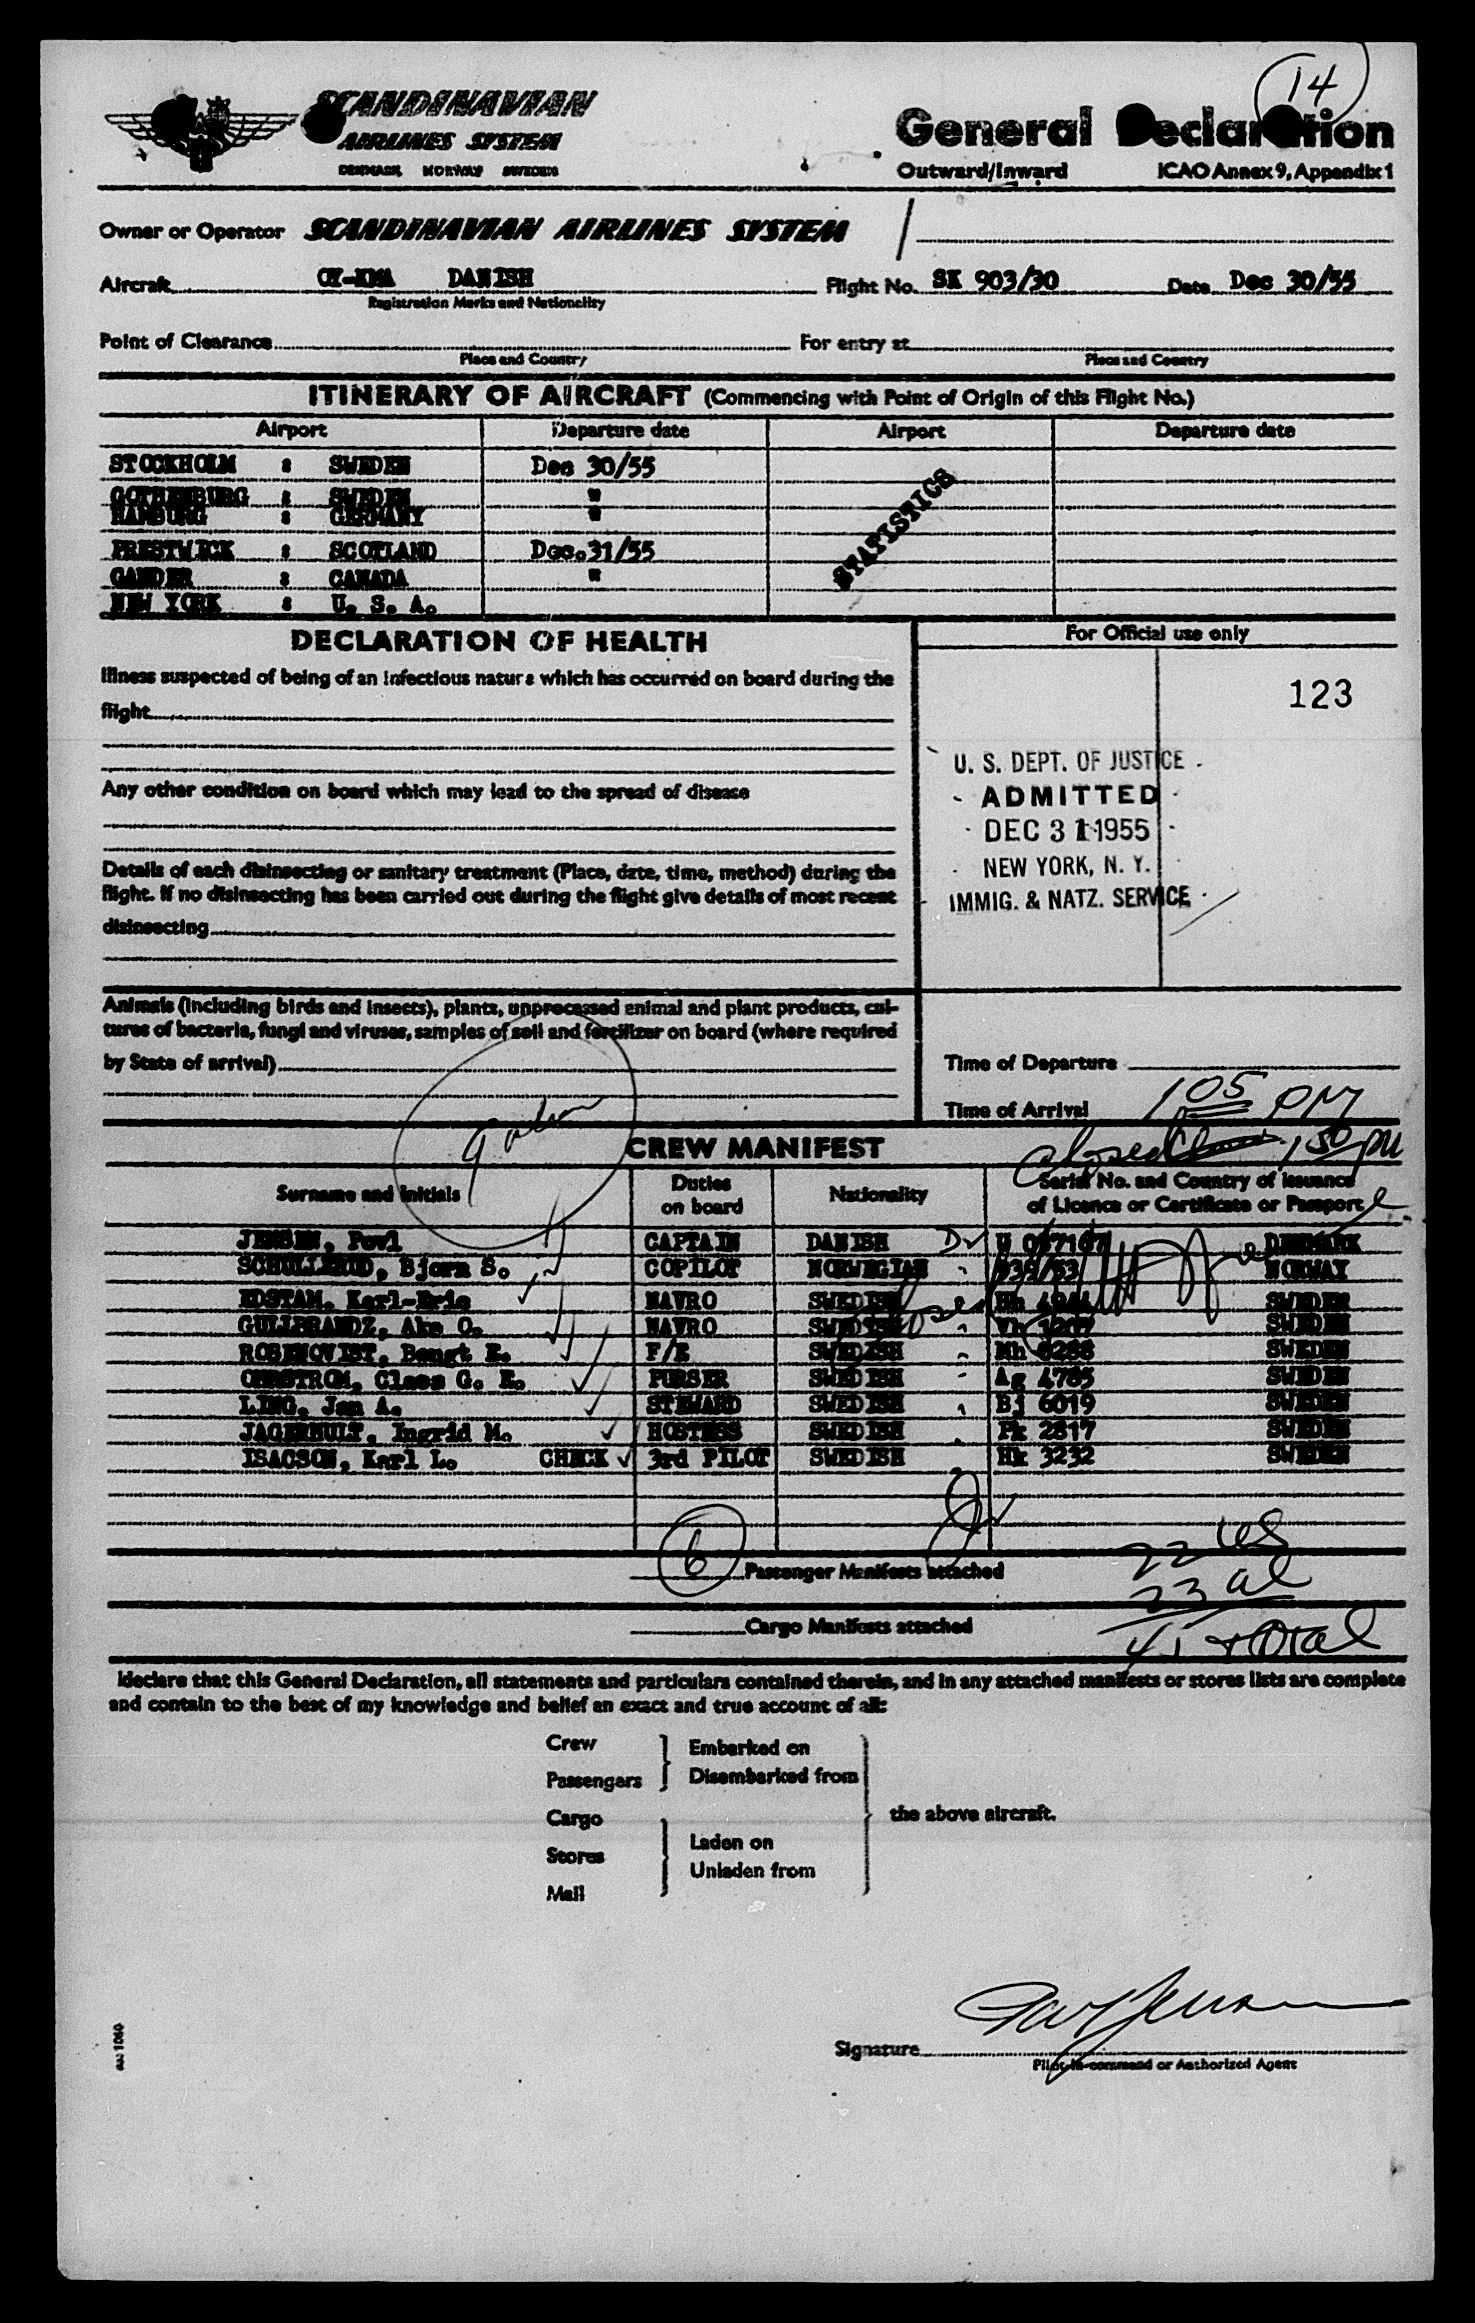 14
SCANDINAVIAN
AIRLINES SYSTEM
DENMARK NORWAY SWEDEN
General Declaration
Outward/Inward ICAO Annex 9, Appendix 1
Owner or Operator SCANDINAVIAN AIRLINES SYSTEM
Aircraft OY-KMA DANISH Flight No. SK 903/30 Date Dec 30/55
Registration Marks and Nationality
Point of Clearance For entry at
Place and Country Place and Country
ITINERARY OF AIRCRAFT (Commencing with Point of Origin of this Flight No.)
Airport Departure date Airport Departure date
STOCKHOLM : SWEDEN Dec 30/55
GOTHENBURG : SWEDEN "
HAMBURG : GERMANY "
PRESTWICK : SCOTLAND Dec. 31/55
GANDER : CANADA "
NEW YORK : U. S. A.
STATISTICS
DECLARATION OF HEALTH
For Official use only
Illness suspected of being of an infectious nature which has occurred on board during the
flight
123
Any other condition on board which may lead to the spread of disease
U. S. DEPT. OF JUSTICE
ADMITTED
DEC 31 1955
NEW YORK, N. Y.
IMMIG. & NATZ. SERVICE
Details of each disinsecting or sanitary treatment (Place, date, time, method) during the
flight. If no disinsecting has been carried out during the flight give details of most recent
disinsecting
Animals (including birds and insects), plants, unprocessed animal and plant products, cul-
tures of bacteria, fungi and viruses, samples of soil and fertilizer on board (where required
by State of arrival)
Time of Departure
Time of Arrival 1 05 PM
CREW MANIFEST
1 50 PM
Surname and Initials Duties on board Nationality Serial No. and Country of issuance of Licence or Certificate or Passport
JENSEN, Povl CAPTAIN DANISH DENMARK
SCHULLERUD, Bjorn S. COPILOT NORWEGIAN NORWAY
EDSTAM, Karl-Eric NAVRO SWEDISH SWEDEN
GULLBRANDZ, Ake O. NAVRO SWEDISH SWEDEN
ROSENQVIST, Bengt E. F/E SWEDISH Mh 8288 SWEDEN
OHRSTROM, Claes G. E. PURSER SWEDISH Ag 4785 SWEDEN
LING, Jan A. STEWARD SWEDISH Bj 6019 SWEDEN
JAGERHULT, Ingrid M. HOSTESS SWEDISH Pk 2817 SWEDEN
ISACSON, Karl L. CHECK 3rd PILOT SWEDISH Hk 3232 SWEDEN
6 Passenger Manifests attached
22 US
23 al
45 total
Cargo Manifests attached
I declare that this General Declaration, all statements and particulars contained therein, and in any attached manifests or stores lists are complete
and contain to the best of my knowledge and belief an exact and true account of all:
Crew
Passengers
Embarked on
Disembarked from
Cargo
Stores
Mail
Laden on
Unladen from
the above aircraft.
Signature
Pilot-in-command or Authorized Agent